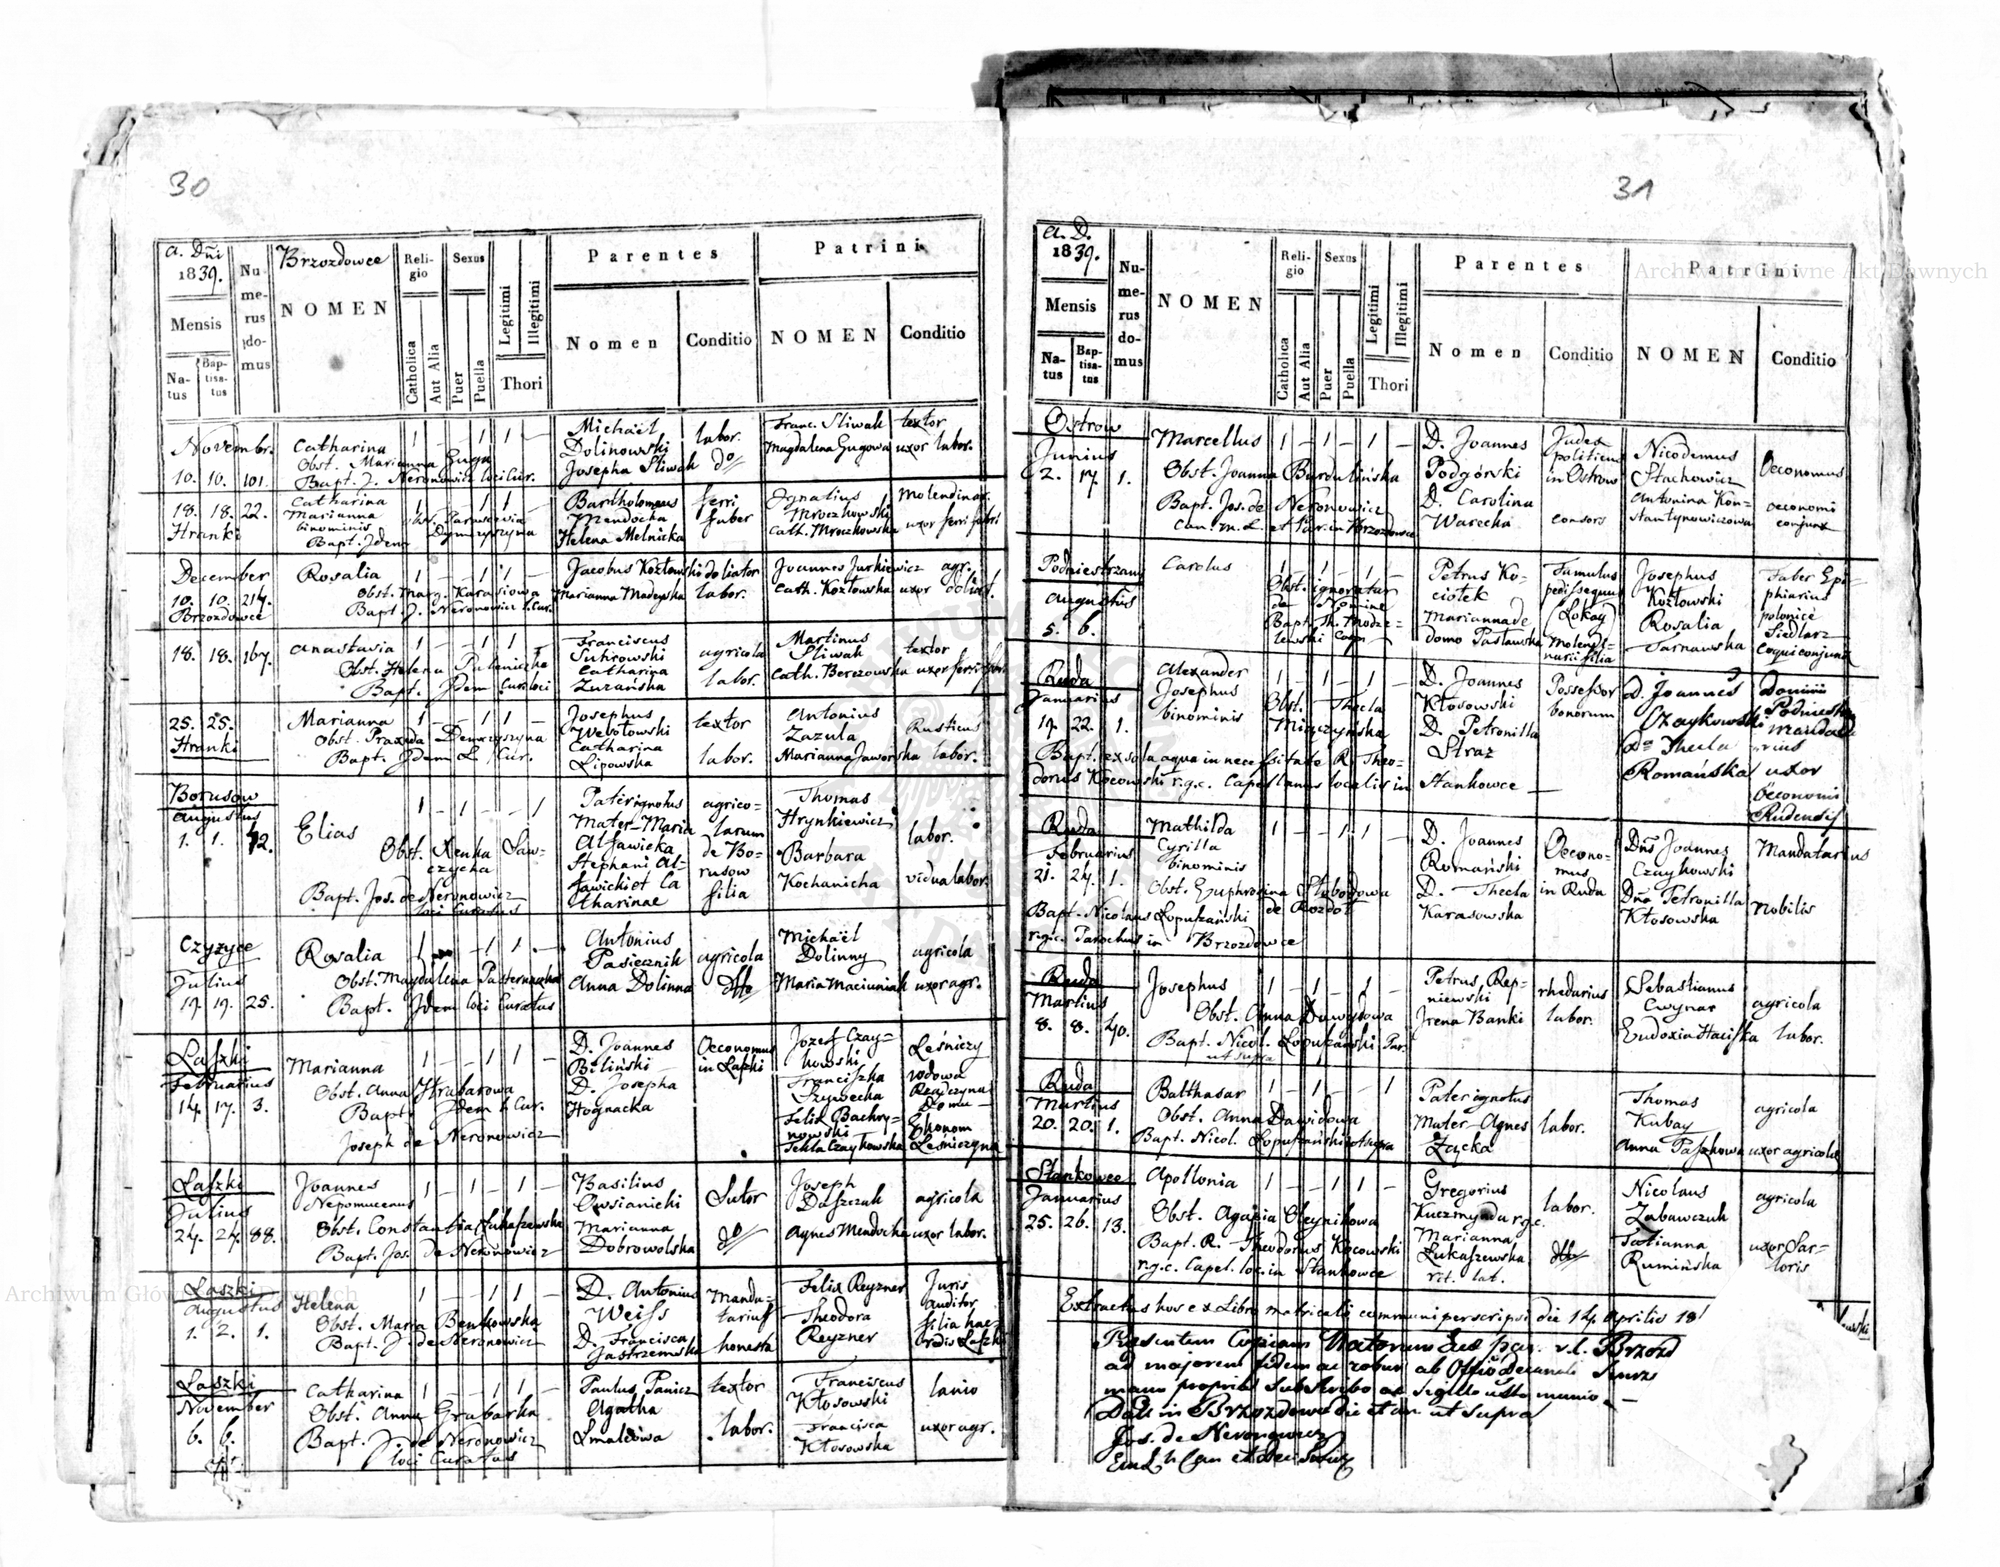 30
a. Dni 1839.
Mensis
Natus
Baptisatus
Numerus domus
Brzozdowce
NOMEN
Religio
Catholica
Aut Alia
Sexus
Puer
Puella
Legitimi
Illegitimi
Thori
Parentes
Nomen
Conditio
Patrini
NOMEN
Conditio
Novembr.
10. 10. 101.
Catharina
Obst. Marianna Guga
Bapt. J. Neronowicz loci Cur.
1 – – 1 1 –
Michaël
Dolinowski
Josepha Sliwak
labor.
do
Franc. Sliwak textor
Magdalena Gugowa uxor labor.
18. 18. 22.
Hranki
Catharina
Marianna
binominis
Obst. Parascevia
Dymczyszyna
Bapt. Idem
1 – – 1 1 –
Bartholomeus
Mendocha
Helena Melnicka
ferri
faber
Ignatius
Mroczkowski
Molendinar.
Cath. Mroczkowska uxor ferri fabri
December
10. 10. 214.
Brzozdowce
Rosalia
Obst. Marg. Karasiowa
Bapt. J. Neronowicz l. Cur.
1 – – 1 1 –
Jacobus Kozłowski doliator
Marianna Madeyska labor.
Joannes Jurkiewicz agr.
Cath. Kozłowska uxor doliat.
18. 18. 167.
Anastasia
Obst. Helena
Bapt. Idem Cur. loci
1 – – 1 1 –
Franciscus
Sutirowski
Catharina
Zurańska
agricola
labor.
Martinus
Sliwak
textor
Cath. Berezowska uxor ferri fabri
25. 25.
Hranki
Marianna
Obst. Praxeda Demczyszyna
Bapt. Idem L. Cur.
1 – – 1 1 –
Josephus
Webolowski
Catharina
Lipowska
textor
labor.
Antonius
Zazula
Rusticus
Marianna Jaworska labor.
Borusow
Augustus
1. 1. 42.
Elias
Obst. Xenka Sawczycha
Bapt. Jos. de Neronowicz
loci Curatus
1 – 1 – – 1
Pater ignotus
Mater Maria
Alsawicka
Stephani Alsawicki et Catharinae
agricolarum
de Borusow
filia
Thomas
Hrynkiewicz
labor.
Barbara
Kochanicha
vidua labor.
Czyzyce
Julius
19. 19. 25.
Rosalia
Obst. Magdalena Patternacka
Bapt. Idem loci Curatus
1 – 1 1 –
Antonius
Pasiecznik
Anna Dolinna
agricola
dtto
Michaël
Dolinny
agricola
Maria Maciuniak uxor agr.
Laszki
Februarius
14. 17. 3.
Marianna
Obst. Anna Hrabarowa
Bapt. Idem l. Cur.
Joseph de Neronowicz
1 – – 1 1 –
D. Joannes
Biliński
D. Josepha
Hognacka
Oeconomus
in Laszki
Jozef Czaykowski
Leśniczy
Franciszka
Szywecka
wdowa
Felix Bachrynowski
Ekonom
Tekla Czaykowska Leśniczyna
Laszki
Julius
24. 24. 88.
Joannes
Nepomucenus
Obst. Constantia Łukaszewska
Bapt. Jos. de Neronowicz
1 – 1 – 1 –
Basilius
Owsianicki
Marianna
Dobrowolska
Sutor
do
Joseph
Daszczuk
agricola
Agnes Mendocha uxor labor.
Laszki
Augustus
1. 2. 1.
Helena
Obst. Maria Benkowska
Bapt. J. de Neronowicz
1 – – 1 1 –
D. Antonius
Weiss
D. Francisca
Jastrzemska
Mandatarius
honesta
Felix Reyzner
Juris
auditor
Theodora
Reyzner
filia haeredis Laszki
Laszki
November
6. 6.
Catharina
Obst. Anna Grabarka
Bapt. J. de Neronowicz
loci Curatus
1 – – 1 1 –
Paulus Panicz
Agatha
Smalcowa
textor
labor.
Franciscus
Kłosowski
lanio
Francisca
Kłosowska
uxor agr.
31
A. D. 1839.
Mensis
Natus
Baptisatus
Numerus domus
NOMEN
Religio
Catholica
Aut Alia
Sexus
Puer
Puella
Legitimi
Illegitimi
Thori
Parentes
Nomen
Conditio
Patrini
NOMEN
Conditio
Ostrow
Junius
2. 17. 1.
Marcellus
Obst. Joanna Burdulińska
Bapt. Jos. de Neronowicz
Can. m. L. et Par. in Brzozdowce
1 – 1 – 1 –
D. Joannes
Podgórski
D. Carolina
Warecka
Judex
politicus
in Ostrow
consors
Nicodemus
Stachowicz
Oeconomus
Antonina Konstantynowiczowa
oeconomi
conjunx
Podniestrzany
Augustus
5. 6.
Carolus
Obst. ignoratur
de Nomine
1 – 1 – 1 –
Petrus Kociołek
Marianna de
domo Pasławska
Famulus
pedissequus
(Lokay)
Molendinarii filia
Josephus
Kozłowski
Rosalia
Tarnawska
Faber Ephiarius
polonice
Siedlarz
Coqui conjunx
Ruda
Januarius
17. 22. 1.
Alexander
Josephus
binominis
Obst. Thecla
Miączyńska
1 – 1 – 1 –
Bapt. ex sola aqua in necessitate R. Theodorus Kocowski r. g. c. Capellanus localis in Stankowce
D. Joannes
Kłosowski
D. Petronilla
Straz
Possessor
bonorum
D. Joannes
Czaykowski
Dna Thecla
Romańska
uxor
Oeconomi
Rudensis
Ruda
Februarius
21. 24. 1.
Mathilda
Cyrilla
binominis
Obst. Euphrosina Słobodowa
de Rozdoł
Bapt. Nicolaus Łopuszański
r. g. c. Parochus in Brzozdowce
1 – – 1 1 –
D. Joannes
Romański
D. Thecla
Karasowska
Oeconomus
in Ruda
Dns Joannes
Czaykowski
Mandatarius
Dna Petronilla
Kłosowska
Nobilis
Ruda
Martius
8. 8. 40.
Josephus
Obst. Anna Dawidowa
Bapt. Nicol. Łopuszański Par.
ut supra
1 – 1 – 1 –
Petrus Repniewski
Irena Banki
rhedarius
labor.
Sebastianus
Cwynar
agricola
Eudoxia Haciska labor.
Ruda
Martius
20. 20. 1.
Balthasar
Obst. Anna Dawidowa
Bapt. Nicol. Łopuszański ut supra
1 – 1 – – 1
Pater ignotus
Mater Agnes
Zącka
labor.
Thomas
Kubay
agricola
Anna Paszkowa uxor agricolae
Stankowce
Januarius
25. 26. 13.
Apollonia
Obst. Agapia Oleynikowa
Bapt. R. Theodorus Kocowski
r. g. c. Capel. loc. in Stankowce
1 – – 1 1 –
Gregorius
Kuczmynda r. g. c.
Marianna
Łukaszewska
rit. lat.
labor.
dtto
Nicolaus
Zabawczuk
agricola
Tatianna
Rumińska
uxor Sartoris
Extractus hos ex Libro matricali communi perscripsi die 14. Aprilis 18
Praesentem Copiam Natorum
ad majorem fidem ac robur ab Officio Decanali
manu propria subscribo ac sigillo usto munio. –
Datt in Brzozdowce die et an ut supra
Jos. de Neronowicz
Archiwum Główne Akt Dawnych
Archiwum Główne Akt Dawnych